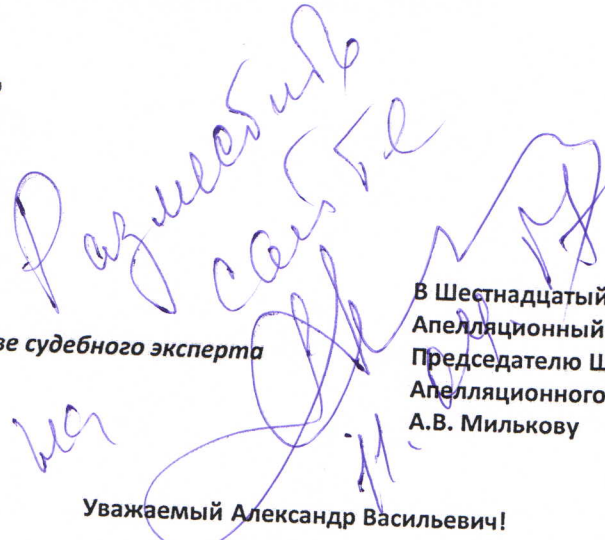 Разместить
на сайте
ве судебного эксперта
В Шестнадцатый
Апелляционный
Председателю Ш
Апелляционного
А.В. Милькову
Уважаемый Александр Васильевич!